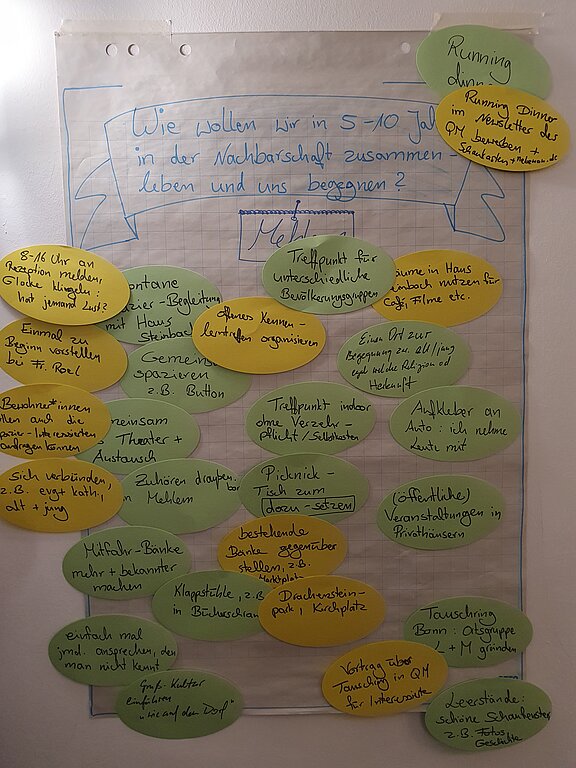 Running
Running Dinner
im Newsletter der
QM bewerben +
Wie wollen wir in 5-10 Jah
in der Nachbarschaft zusammen-
leben und uns begegnen?
8-16 Uhr an
Rezeption melden,
Glocke klingeln:
hat jemand Lust?
ontane
azier-Begleitung
mit Haus
Steinbach
Treffpunkt für
unterschiedliche
Bevölkerungsgruppen
äume in Haus
einbach nutzen für
Café, Filme etc.
offenes Kennen-
lerntreffen organisieren
Einmal zu
Beginn vorstellen
bei Fr. Roel
Gemeins
spazieren
z.B. Button
Einen Ort zur
Begegnung zw. alt/jung
egal welche Religion od
Herkunft
Bewohner*innen
auch die
können
einsam
Theater +
Austausch
Treffpunkt indoor
ohne Verzehr-
pflicht/Selbstkosten
Aufkleber an
Auto: ich nehme
Leute mit
sich verbünden,
z.B. evg+ kath.,
alt + jung
Zuhören draußen
in Mehlem
Picknick-
Tisch zum
dazu-setzen
(öffentliche)
Veranstaltungen in
Privathäusern
Mitfahr-Bänke
mehr + bekannter
machen
bestehende
Bänke gegenüber
stellen, z.B.
Marktplatz
Klappstühle, z.B.
in Bücherschran
Drachenstein-
park, Kirchplatz
einfach mal
jmd. ansprechen, den
man nicht kennt
Tauschring
Bonn: Ortsgruppe
L + M gründen
Gruß-Kultur
einführen
"wie auf dem Dorf"
Vortrag über
Tauschring in QM
für Interessierte
Leerstände:
schöne Schaufenster
z.B. Fotos
Geschichte